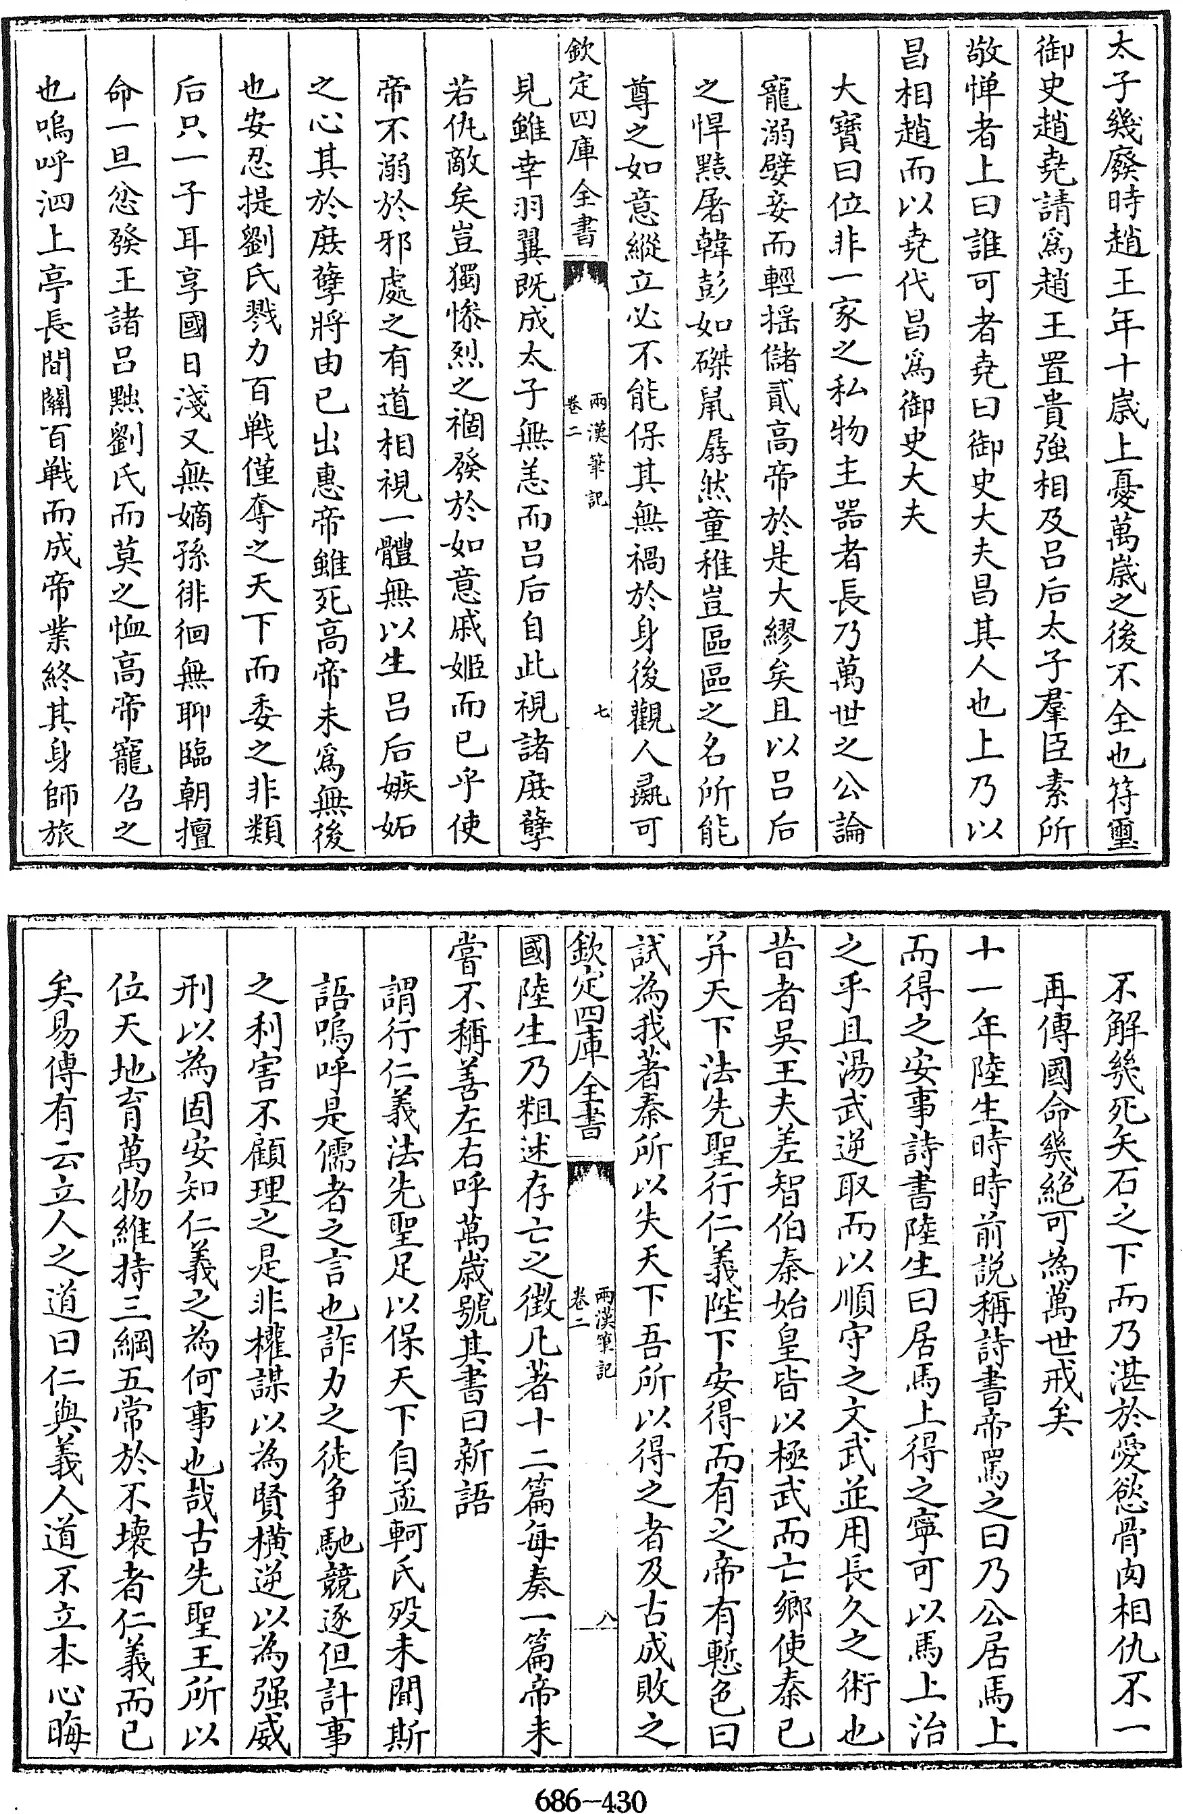 太子幾廢時趙王年十嵗上憂萬嵗之後不全也符璽
御史趙堯請爲趙王置貴強相及呂后太子羣臣素所
敬憚者上曰誰可者堯曰御史大夫昌其人也上乃以
昌相趙而以堯代昌爲御史大夫
大寶曰位非一家之私物主器者長乃萬世之公論
寵溺嬖妾而輕揺儲貳高帝於是大繆矣且以呂后
之悍黠屠韓彭如磔鼠孱然童稚豈區區之名所能
尊之如意縱立必不能保其無禍於身後觀人彘可
欽定四庫全書
兩漢筆記
卷二
七
見雖幸羽翼既成太子無恙而呂后自此視諸庻孽
若仇敵矣豈獨惨烈之禍發於如意戚姬而已乎使
帝不溺於邪處之有道相視一體無以生呂后嫉妬
之心其於庻孽將由已出惠帝雖死高帝未爲無後
也安忍提劉氏戮力百戰僅奪之天下而委之非類
后只一子耳享國日淺又無嫡孫徘徊無聊臨朝擅
命一旦忿發王諸呂黜劉氏而莫之恤高帝寵召之
也嗚呼泗上亭長間關百戰而成帝業終其身師旅
不解幾死矢石之下而乃湛於愛慾骨肉相仇不一
再傳國命幾絕可為萬世戒矣
十一年陸生時時前說稱詩書帝罵之曰乃公居馬上
而得之安事詩書陸生曰居馬上得之寧可以馬上治
之乎且湯武逆取而以順守之文武並用長久之術也
昔者吳王夫差智伯秦始皇皆以極武而亡鄉使秦已
并天下法先聖行仁義陛下安得而有之帝有慙色曰
試為我著秦所以失天下吾所以得之者及古成敗之
欽定四庫全書
兩漢筆記
卷二
八
國陸生乃粗述存亡之徴凡著十二篇每奏一篇帝未
嘗不稱善左右呼萬嵗號其書曰新語
謂行仁義法先聖足以保天下自孟軻氏歿未聞斯
語嗚呼是儒者之言也詐力之徒争馳競逐但計事
之利害不顧理之是非權謀以為賢橫逆以為强威
刑以為固安知仁義之為何事也哉古先聖王所以
位天地育萬物維持三綱五常於不壞者仁義而已
矣易傳有云立人之道曰仁與義人道不立本心晦
686-430